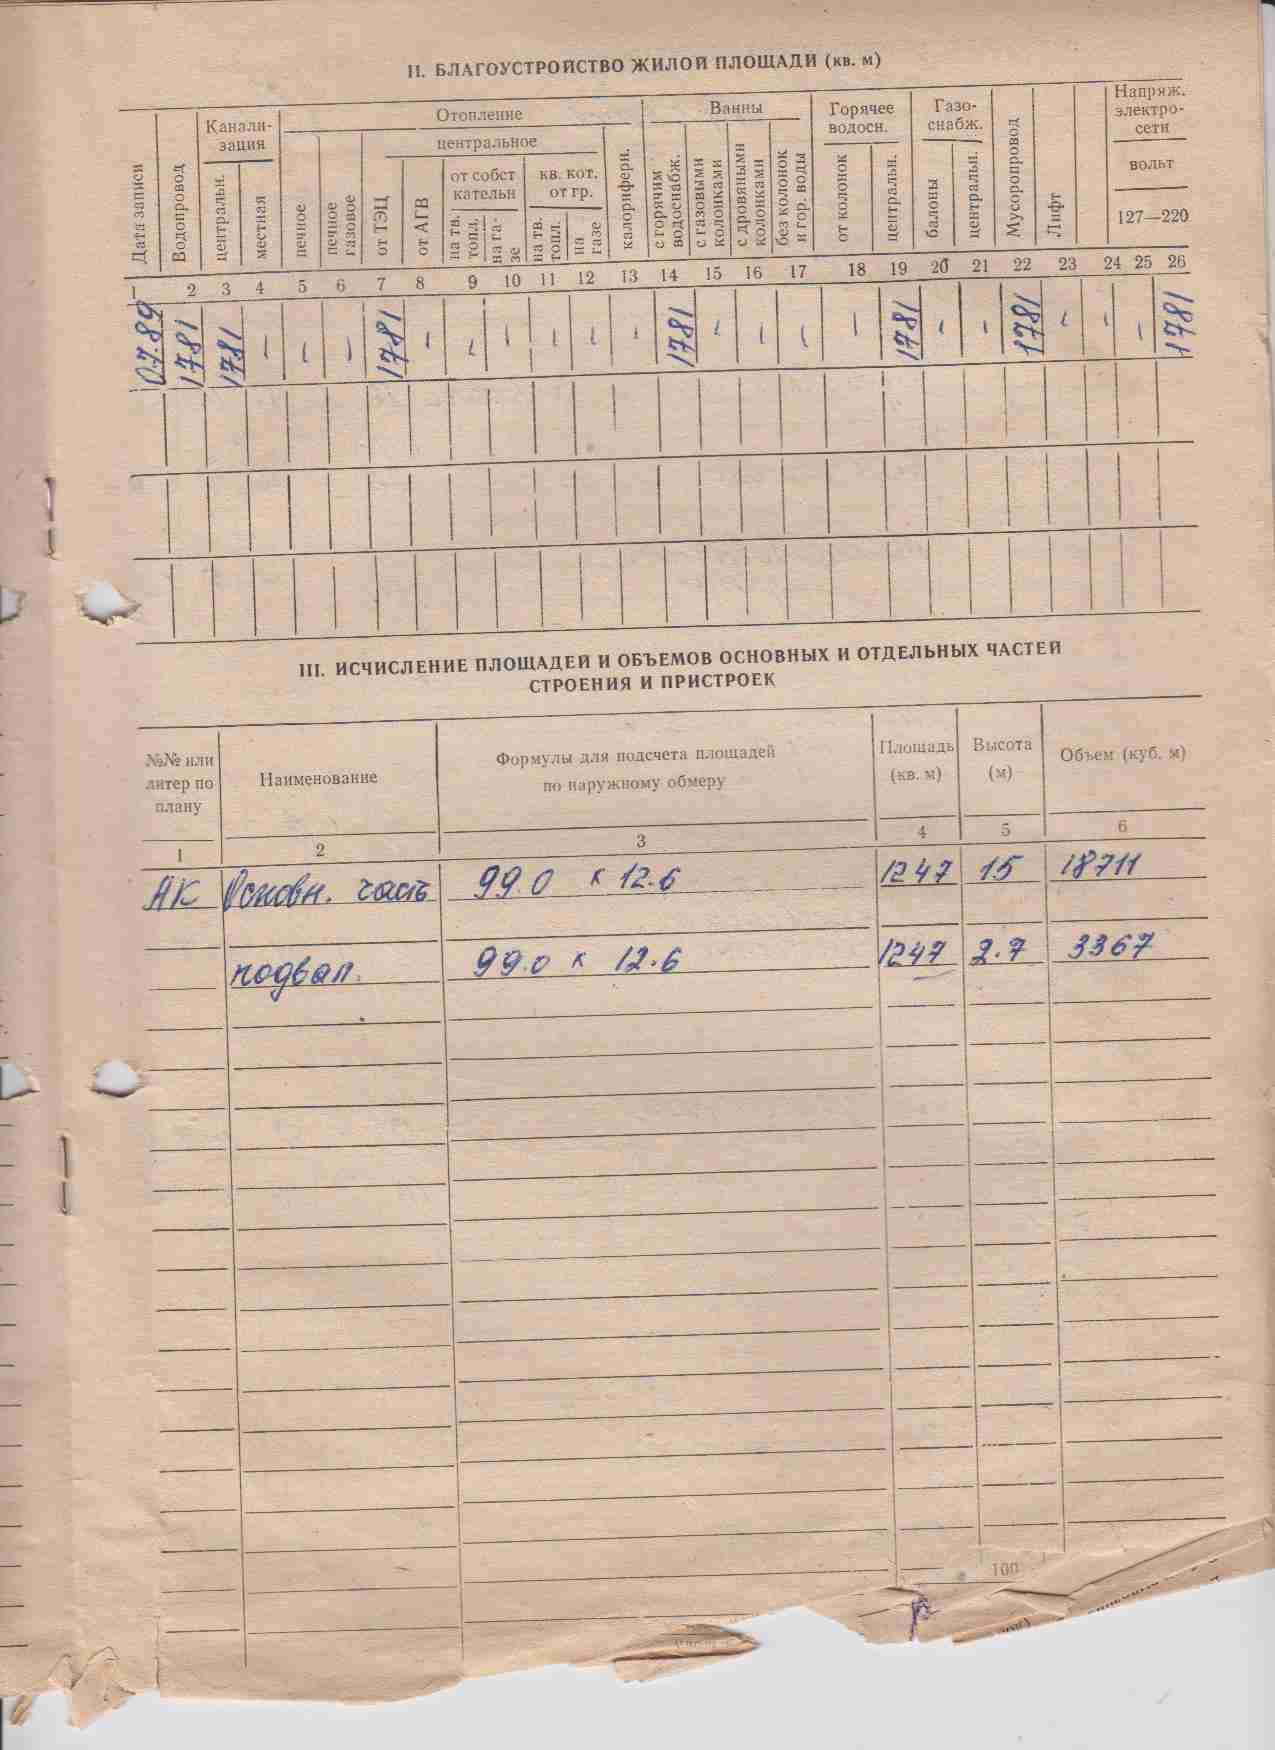 II. БЛАГОУСТРОЙСТВО ЖИЛОЙ ПЛОЩАДИ (кв. м)
Дата записи
Водопровод
Канали-
зация
центральн.
местная
Отопление
печное
печное газовое
центральное
от ТЭЦ
от АГВ
от собст
кательн
на тв. топл.
на га-
зе
кв. кот.
от гр.
на тв. топл.
на газе
калорифери.
Ванны
с горячим водоснабж.
с газовыми колонками
с дровяными колонками
без колонок и гор. воды
Горячее
водосн.
от колонок
центральн.
Газо-
снабж.
балоны
центральн.
Мусоропровод
Лифт
Напряж.
электро-
сети
вольт
127—220
1 2 3 4 5 6 7 8 9 10 11 12 13 14 15 16 17 18 19 20 21 22 23 24 25 26
07.89 1781 1781 — — — 1781 — — — — — — 1781 — — — — 1781 — — 1781 — — — 1781
III. ИСЧИСЛЕНИЕ ПЛОЩАДЕЙ И ОБЪЕМОВ ОСНОВНЫХ И ОТДЕЛЬНЫХ ЧАСТЕЙ
СТРОЕНИЯ И ПРИСТРОЕК
№№ или
литер по
плану
Наименование
Формулы для подсчета площадей
по наружному обмеру
Площадь
(кв. м)
Высота
(м)
Объем (куб. м)
1 2 3 4 5 6
АК Основн. часть 99.0 х 12.6 1247 15 18711
подвал. 99.0 х 12.6 1247 2.7 3367
100